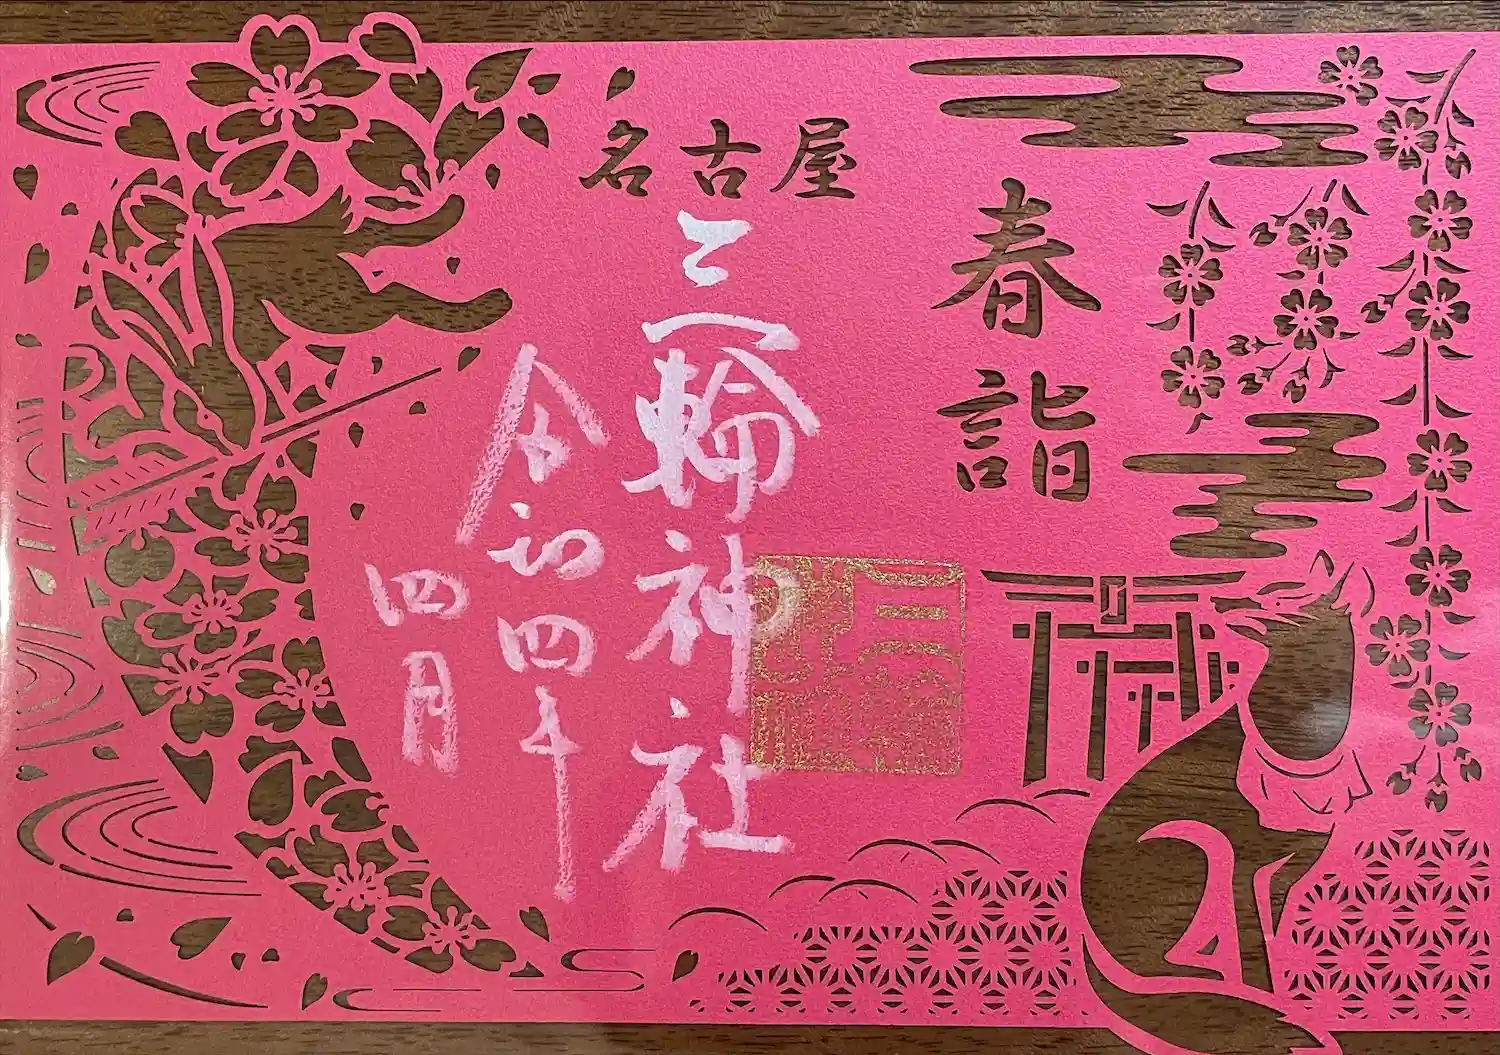 名古屋
春詣
三輪神社
令和四年
四月